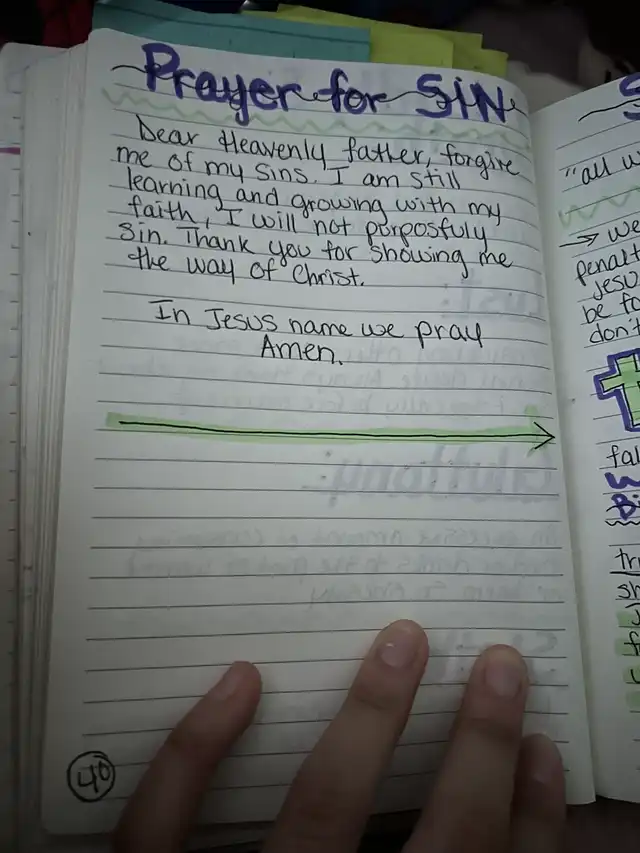 Prayer for SIN
Dear Heavenly father, forgive
me of my sins. I am still
learning and growing with my
faith, I will not porposfuly
sin. Thank you for showing me
the way of Christ.
In Jesus name we pray
Amen.
40
S
"all w
→ we
penalt
Jesu
be fo
don't
fal
W
Bi
tri
sh
J
f